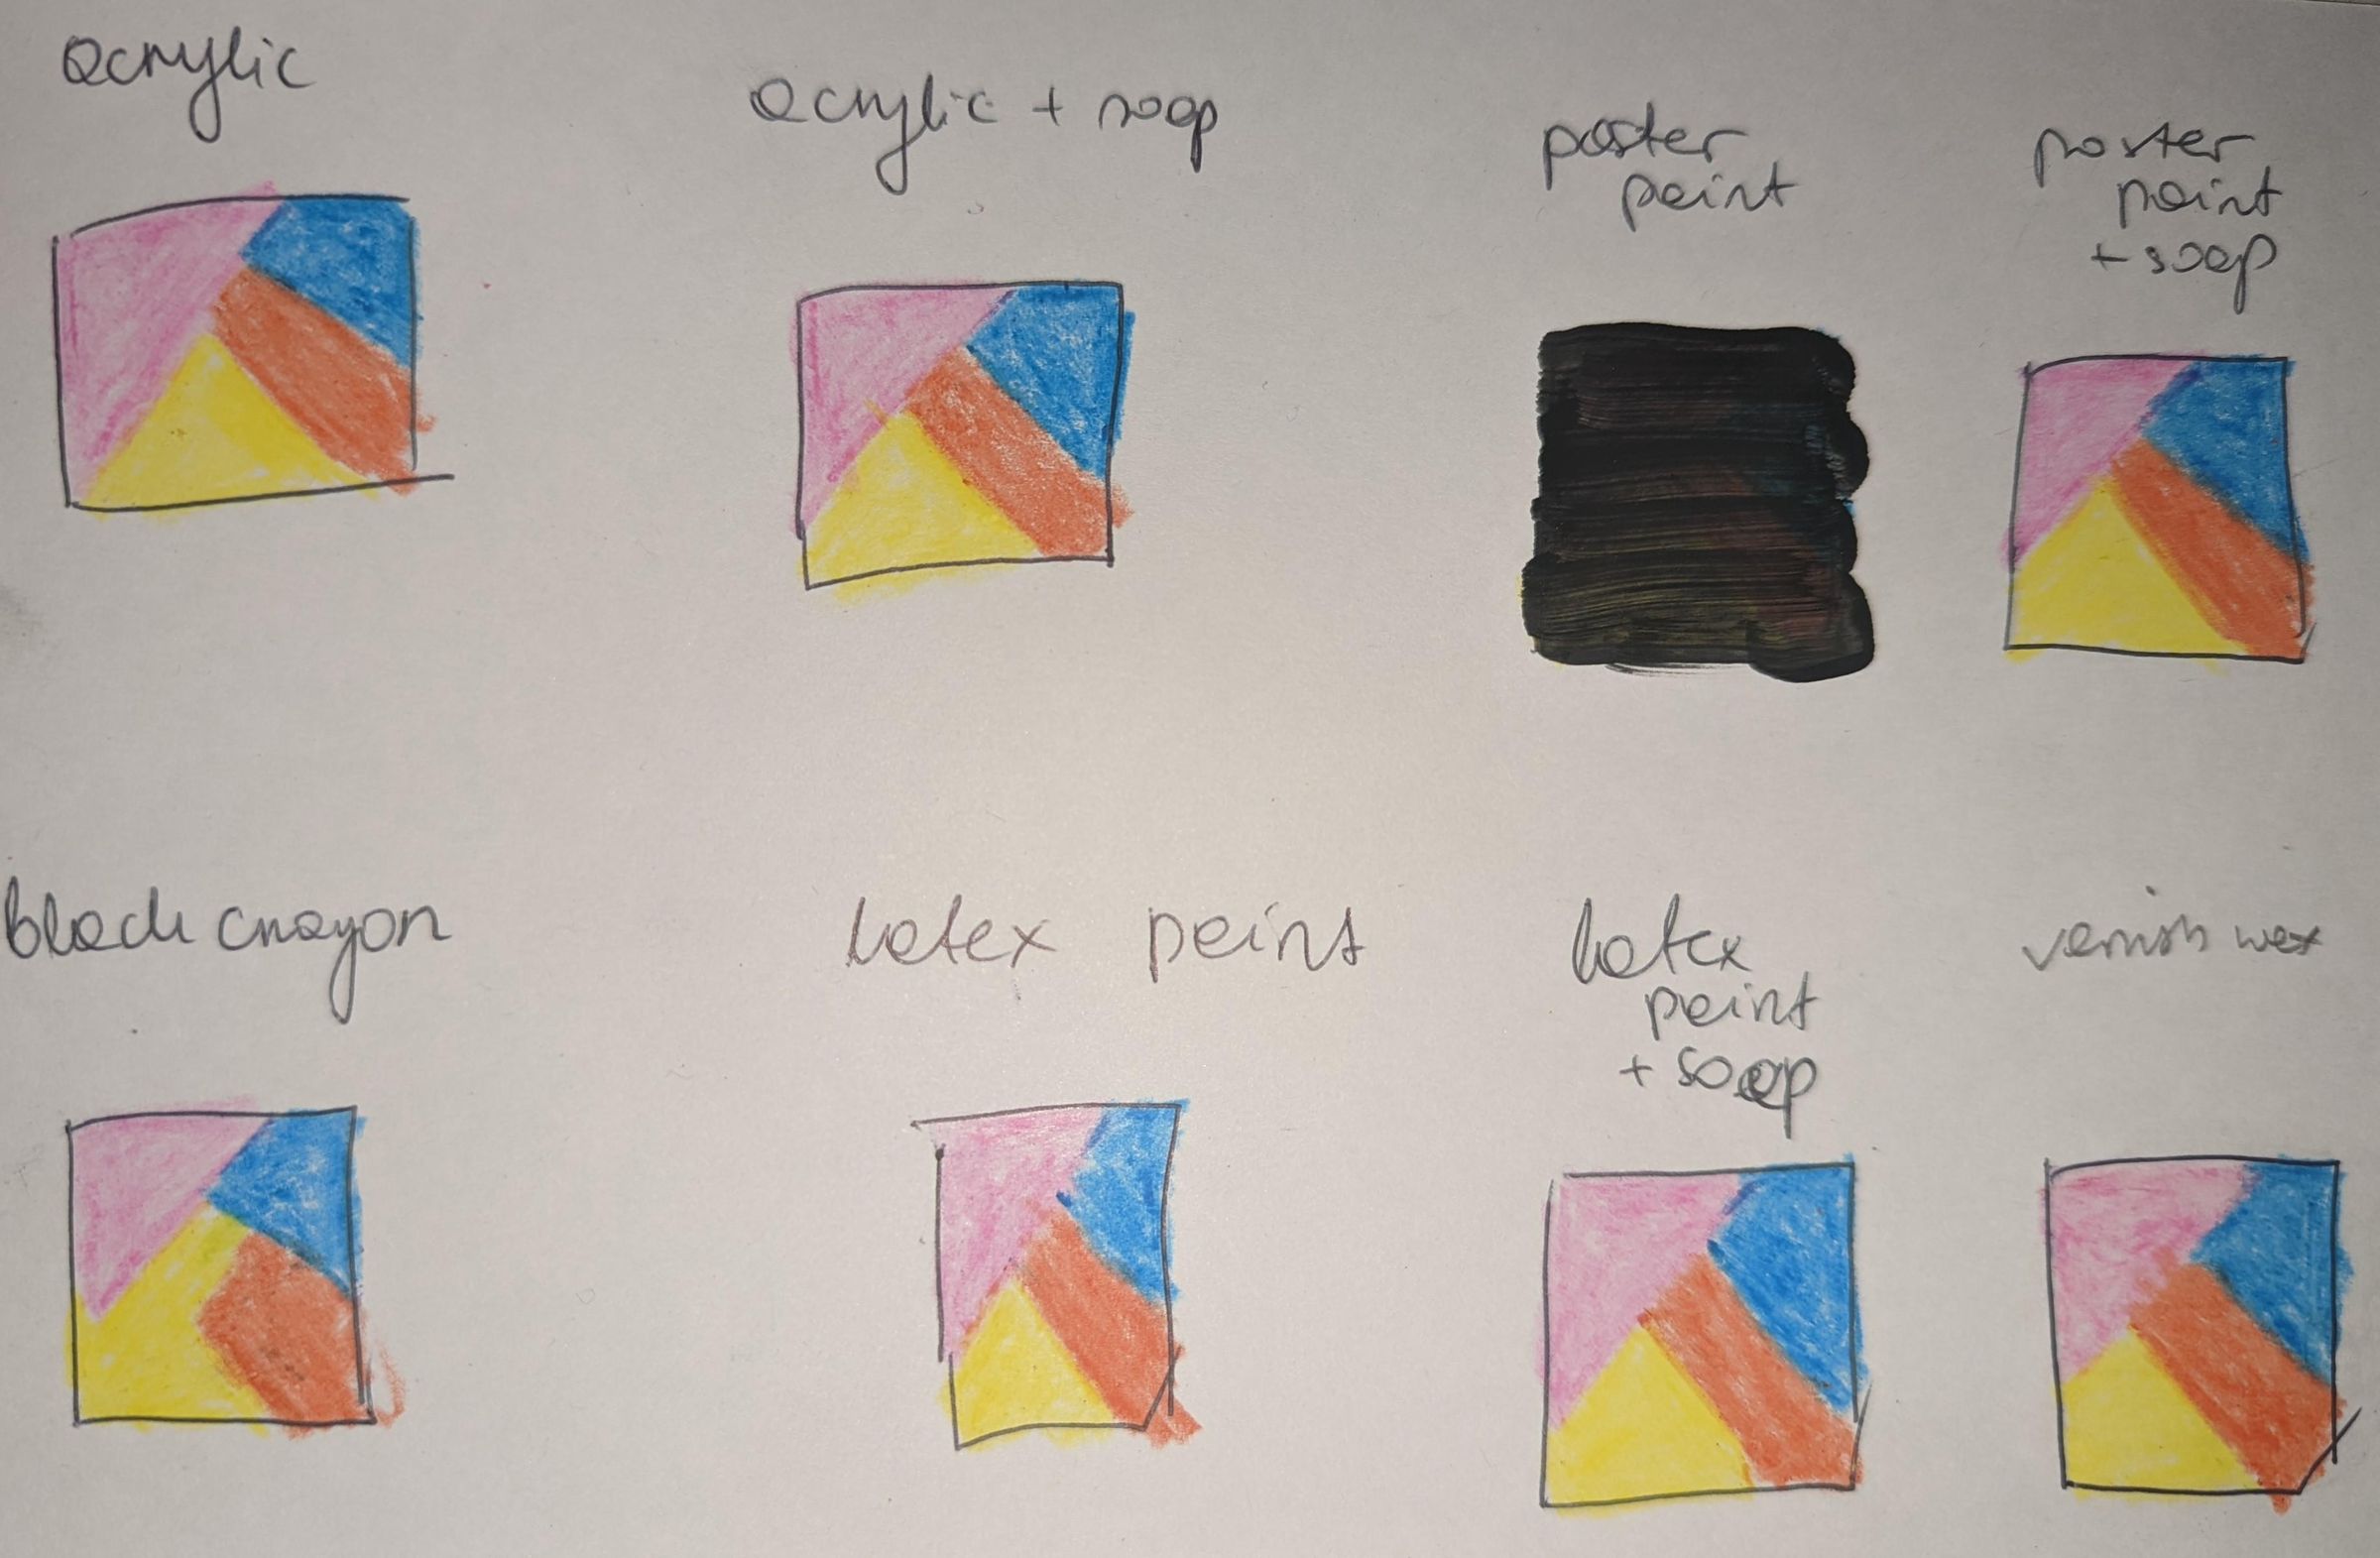 acrylic
acrylic + soap
poster
paint
poster
paint
+ soap
black crayon
latex paint
latex
paint
+ soap
varnish wax